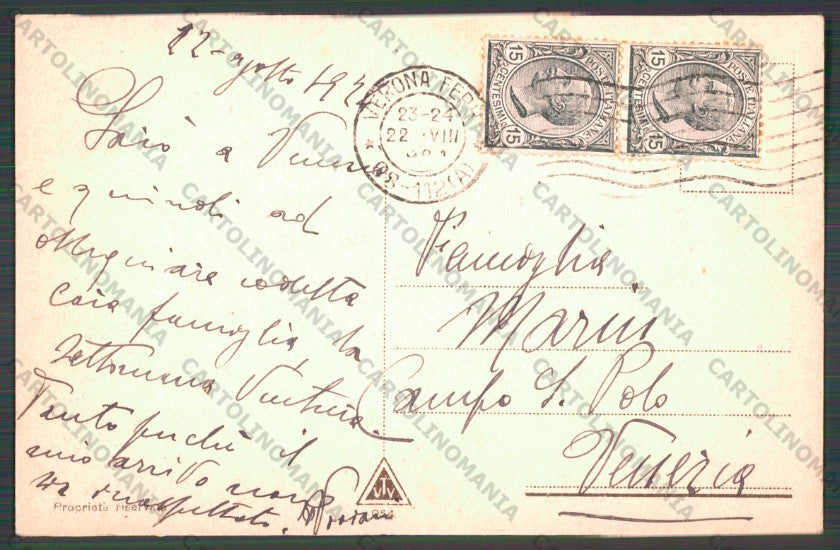 agosto
Sarò a
e quindi ad
ossequiare codesta
cara famiglia, la
settimana ventura.
Tanto perchè il
mio arrivo non
inaspettato.
VERONA FER
23-24
22 VIII
112(A)
15 CENTESIMI 15
POSTE ITALIANE
15 CENTESIMI 15
POSTE ITALIANE
Famiglia
Marin
Campo S. Polo
Venezia
Proprietà riservata
VTV
CARTOLINOMANIA